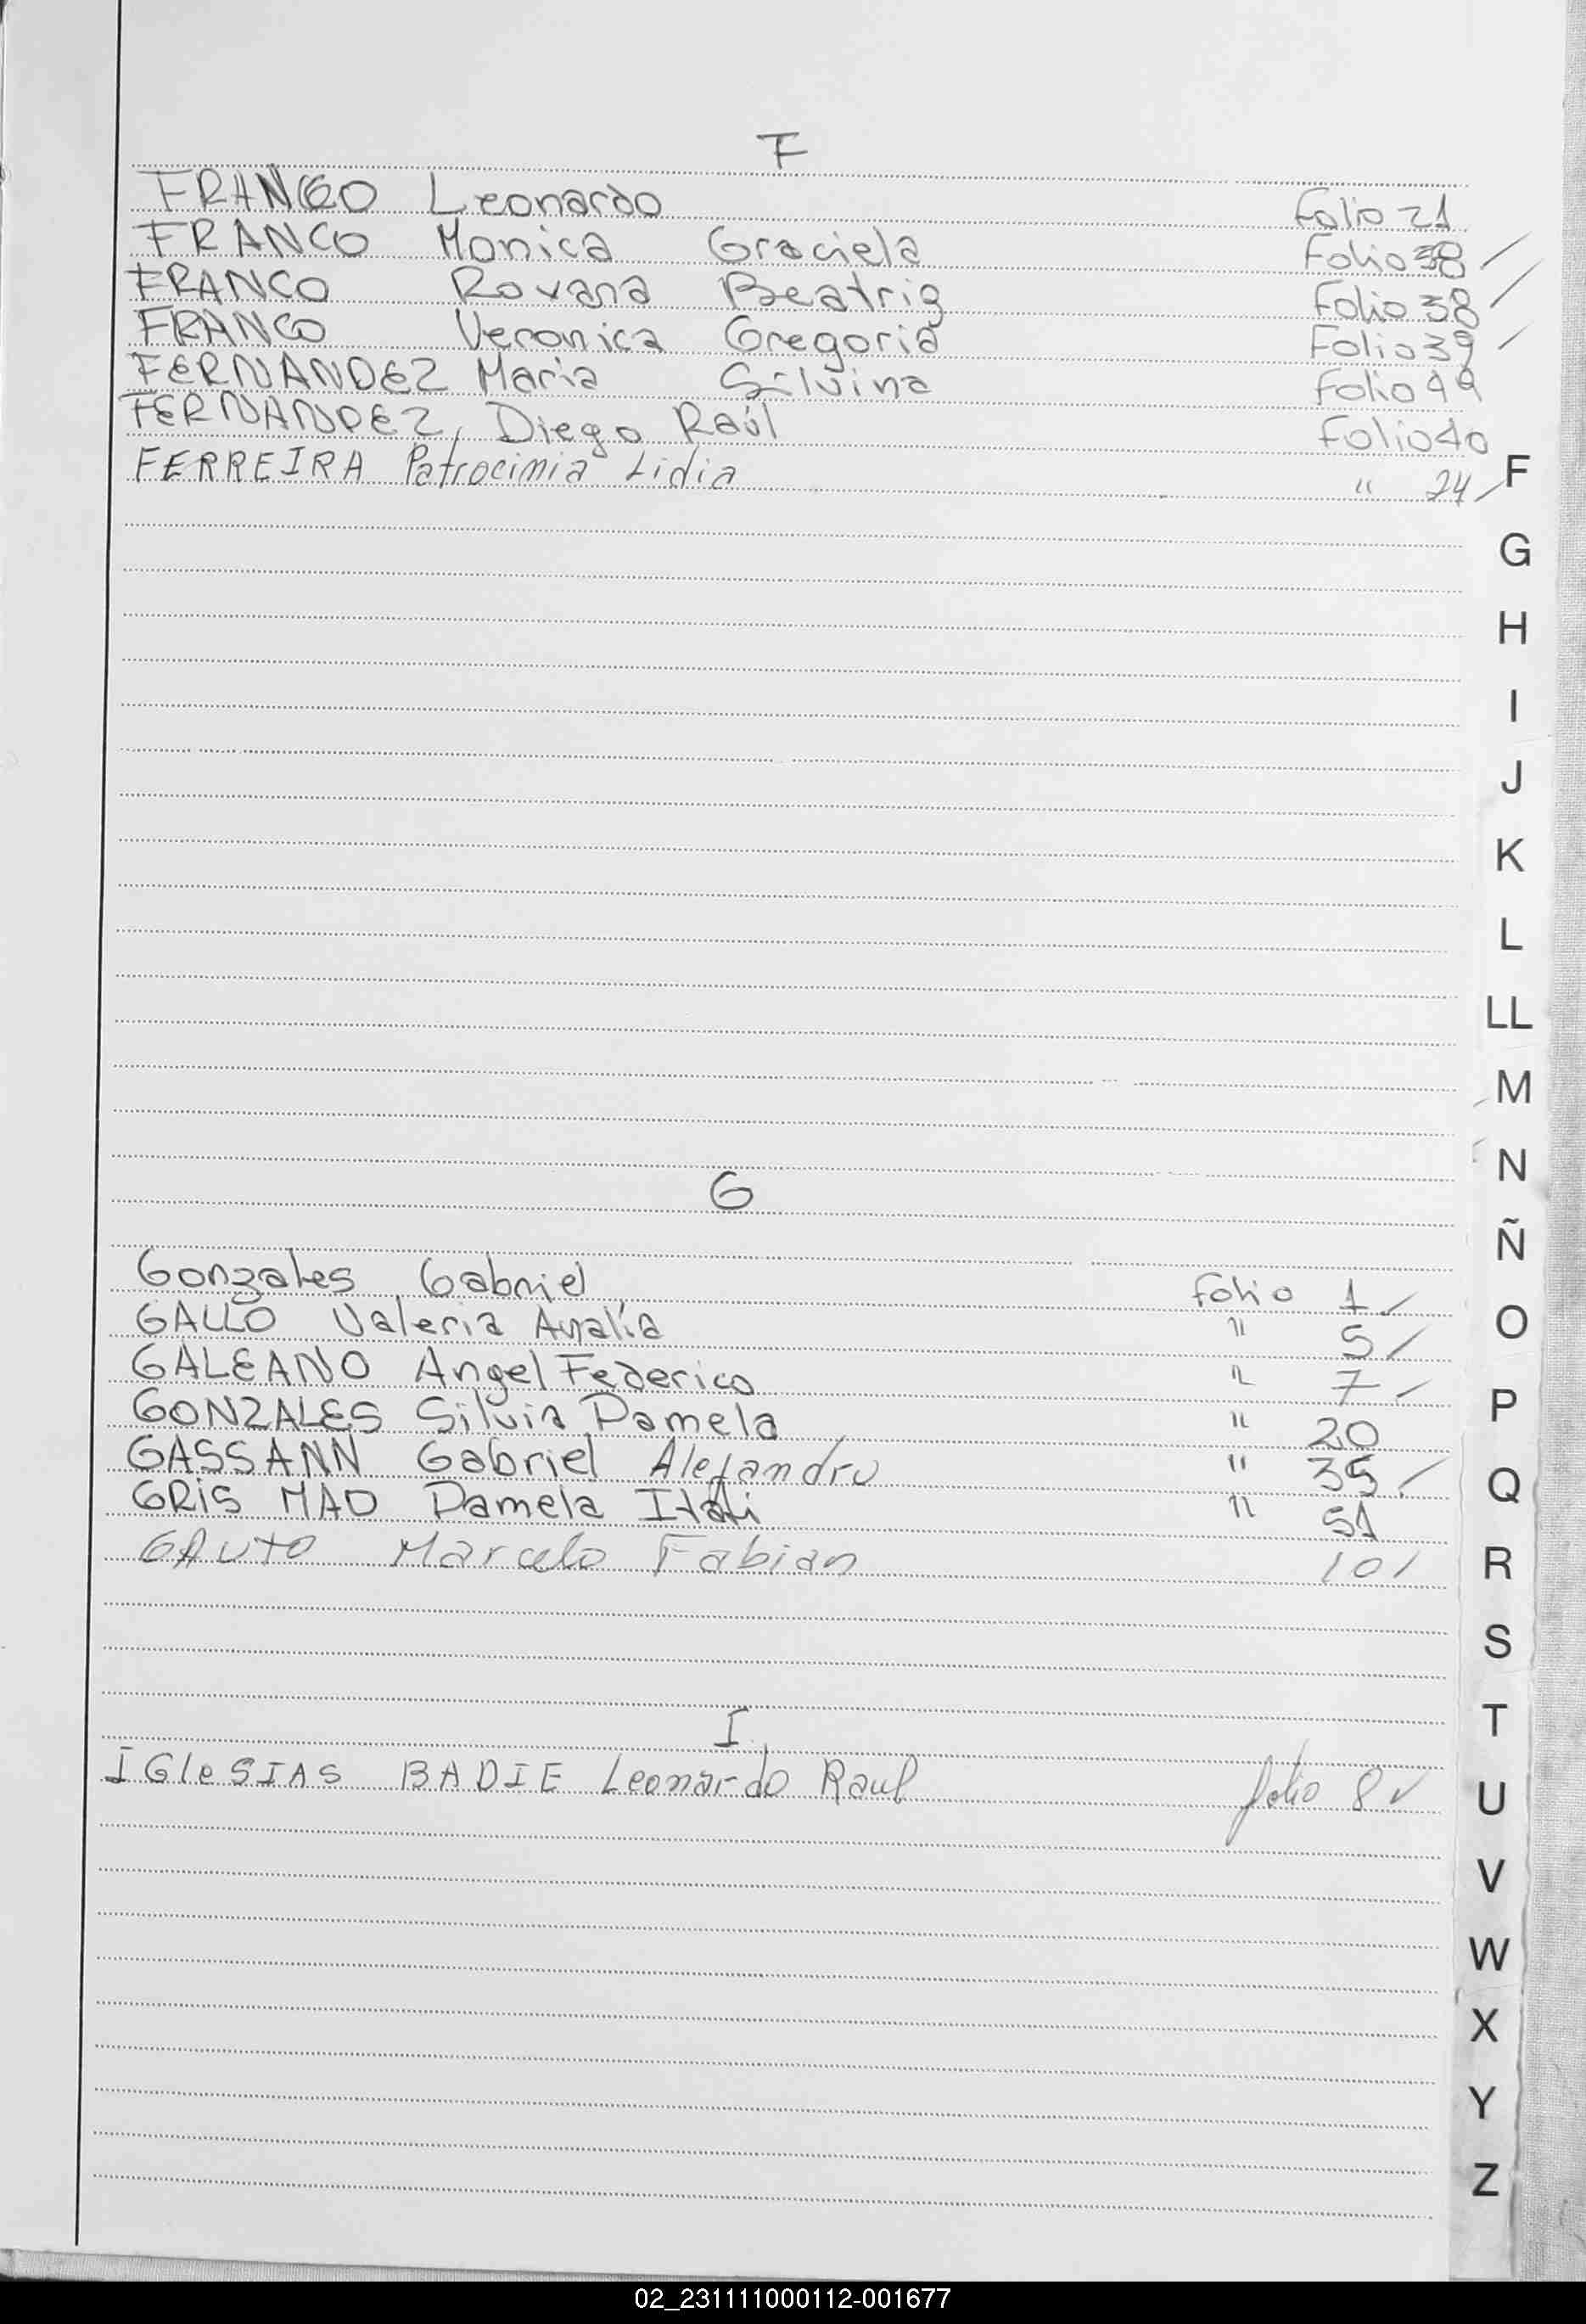 F
FRANCO Leonardo Folio 21
FRANCO Monica Graciela Folio 38
FRANCO Roxana Beatriz Folio 38
FRANCO Veronica Gregoria Folio 39
FERNANDEZ Maria Silvina Folio 49
FERNANDEZ, Diego Raúl Folio 40
FERREIRA Patrocinia Lidia " 24
G
Gonzales Gabriel folio 1
GALLO Valeria Analía " 5
GALEANO Angel Federico " 7
GONZALES Silvia Pamela " 20
GASSANN Gabriel Alejandro " 35
GRIS MAO Pamela Itati " 51
GAUTO Marcelo Fabian 10
I
IGleSIAS BADIE Leonardo Raul folio 8
F
G
H
I
J
K
L
LL
M
N
Ñ
O
P
Q
R
S
T
U
V
W
X
Y
Z
02_231111000112-001677